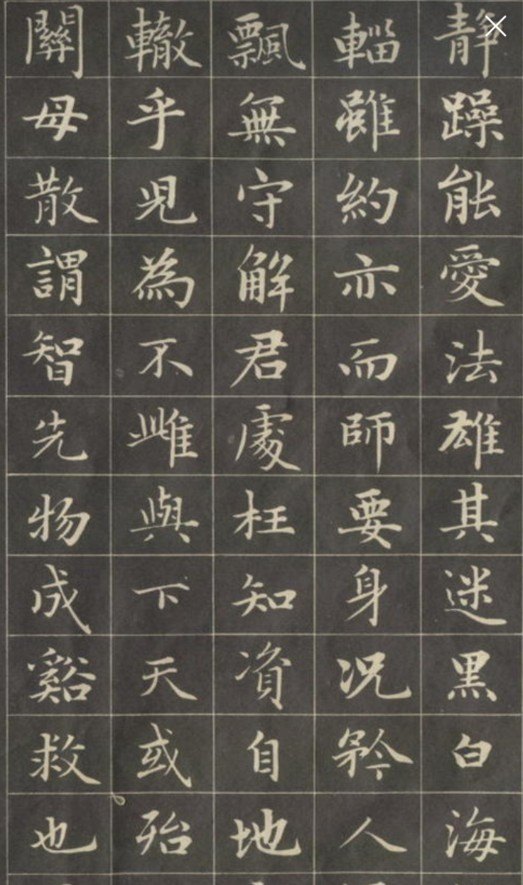 靜躁能愛法雄其迷黑白海
輜雖約亦而師要身況矜人
飄無守解君處枉知資自地
轍乎兒為不雌與下天或殆
關母散謂智先物成谿救也